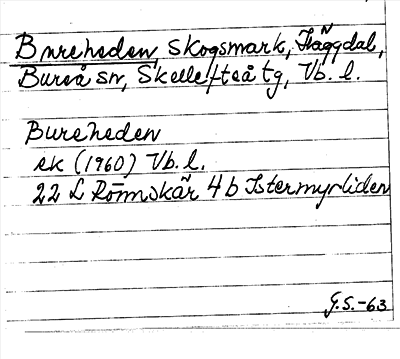 Bureheden, Skogsmark, Häggdal,
Bureå sn, Skellefteå tg, Vb. l.
Bureheden
ek (1960) Vb. l.
22 L Rönnskär 4b Istermyrliden
G.S.-63